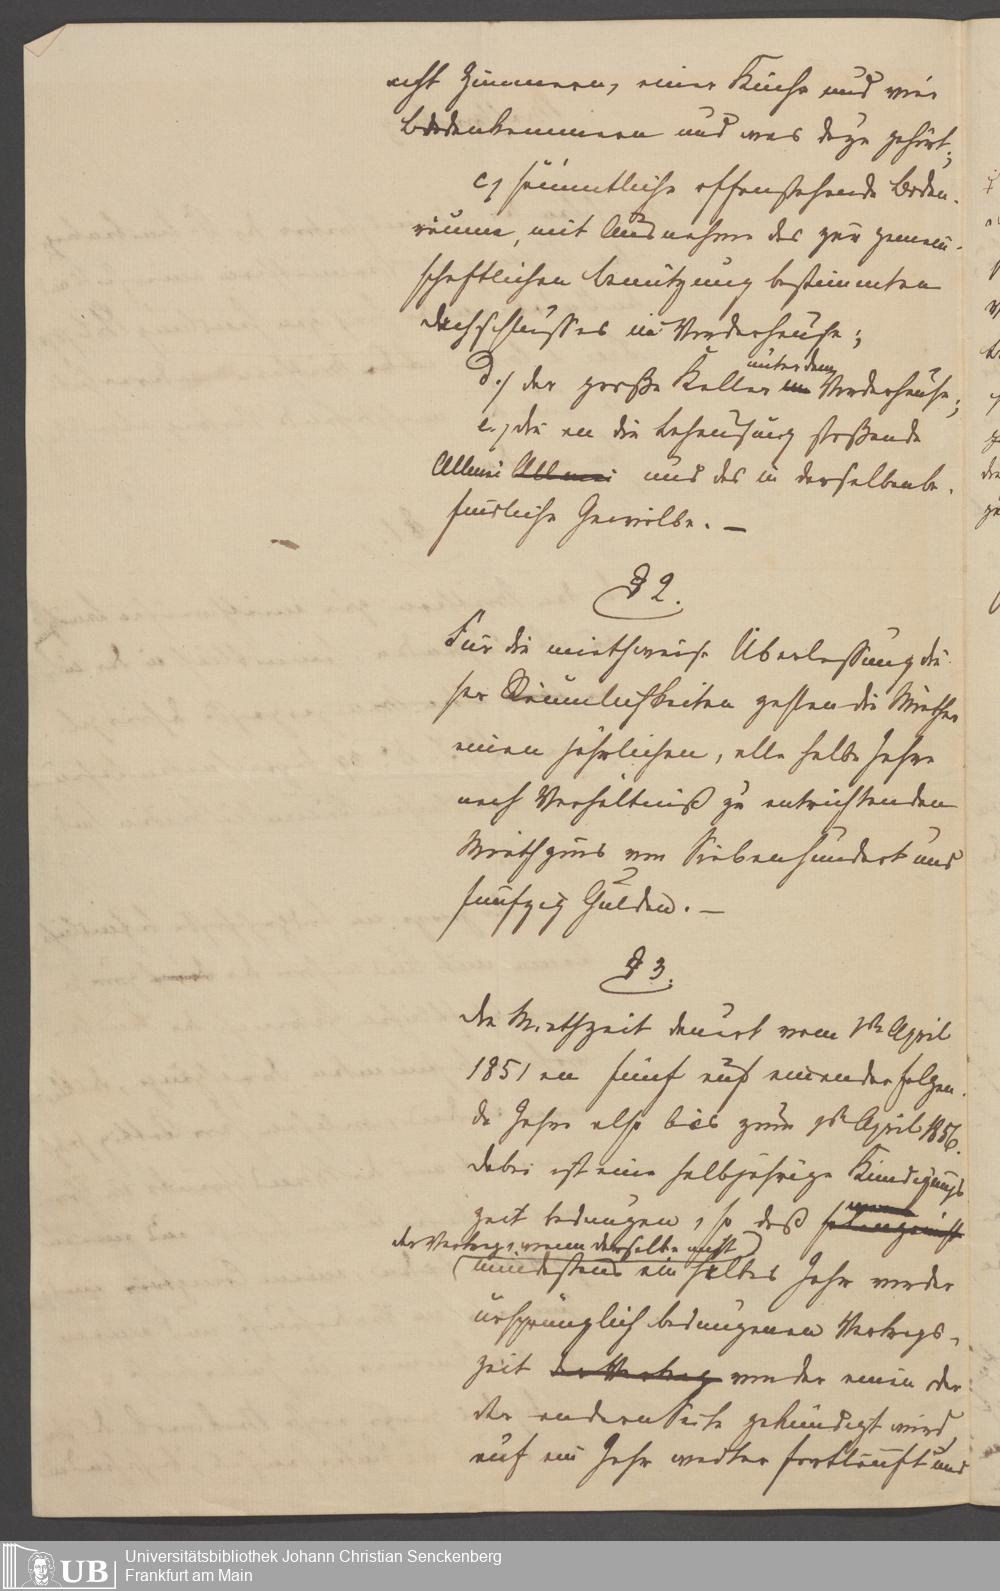 acht Zimmern, einer Küche und vier
Bodenkammern und was dazu gehört;
c, sämmtliche offenstehende Boden-
räume, mit Ausnahme des zur gemein-
schaftlichen Benutzung bestimmten
im Vorderhause;
d./ der große Keller im unter dem Vorderhause;
e., die an die Behausung stoßende
Allmei Allmei und das in derselben be-
findliche Gewölbe. —
§ 2.
Für die miethweise Überlassung die-
ser Räumlichkeiten die Miether
einen jährlichen, alle halbe Jahre
nach Verhältniß zu entrichtenden
Miethzins von Siebenhundert und
fünfzig Gulden. —
§ 3.
Die Miethzeit dauert vom 1ten April
1851 an fünf auf einander folgen-
de Jahre also bis zum 1ten April 1856.
Dabei ist eine halbjährige Kündigungs
zeit bedungen, so daß
der Vertrag, wenn derselbe nicht
mindestens ein halbes Jahr vor der
ursprünglich bedungenen Vertrags-
zeit der Vertrag von der einen oder
der andern Seite gekündigt wird,
auf ein Jahr weiter fortläuft und
Universitätsbibliothek Johann Christian Senckenberg
UB Frankfurt am Main